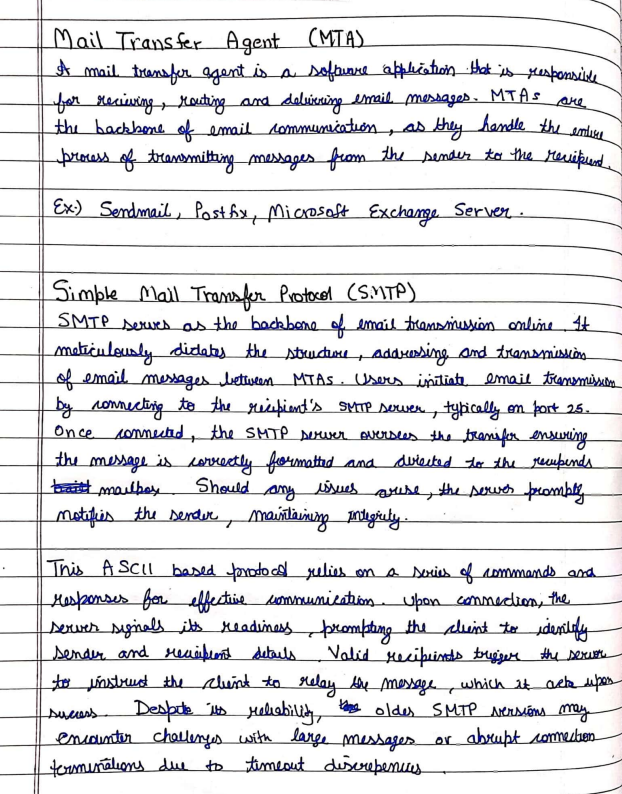 Mail Transfer Agent (MTA)
A mail transfer agent is a software application that is responsible
for recieving, routing and delivering email messages. MTAs are
the backbone of email communication, as they handle the entire
process of transmitting messages from the sender to the recipient.
Ex:) Sendmail, Postfix, Microsoft Exchange Server.
Simple Mail Transfer Protocol (SMTP)
SMTP serves as the backbone of email transmission online. It
meticulously dictates the structure, addressing and transmission
of email messages between MTAs. Users initiate email transmission
by connecting to the recipient's SMTP server, typically on port 25.
Once connected, the SMTP server oversees the transfer ensuring
the message is correctly formatted and directed to the recipients
mailbox. Should any issues arise, the server promptly
notifies the sender, maintaining integrity.
This ASCII based protocol relies on a series of commands and
responses for effective communication. Upon connection, the
server signals its readiness, prompting the client to identify
sender and recipient details. Valid recipients trigger the server
to instruct the client to relay the message, which it acts upon
success. Despite its reliability, older SMTP versions may
encounter challenges with large messages or abrupt connection
terminations due to timeout discrepencies.